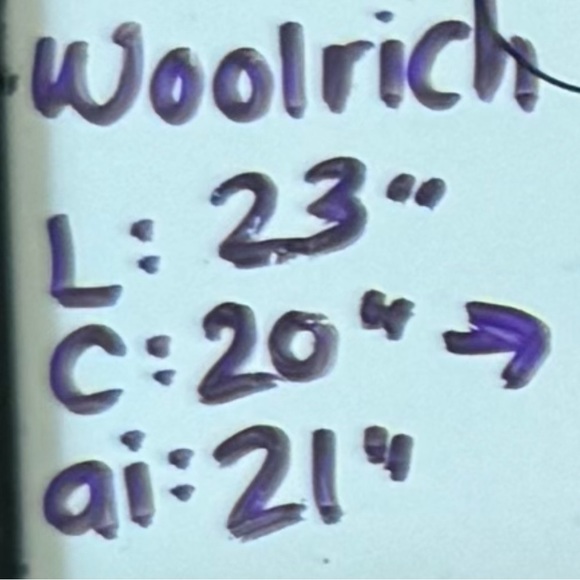 Woolrich
L: 23"
C: 20" →
ai: 21"